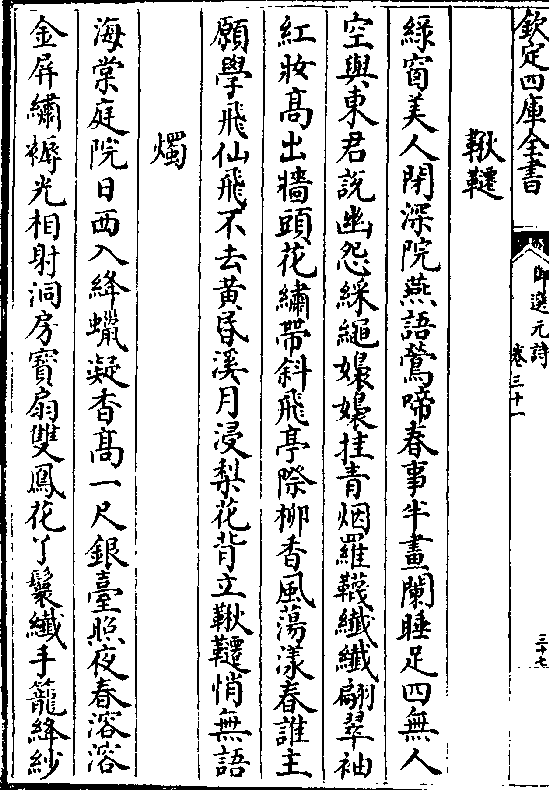 欽定四庫全書
御選元詩
卷三十一
三十七
鞦韆
綠窗美人閉深院燕語鶯啼春事半畫闌睡足四無人
空與東君說幽怨綵繩嬝嬝挂青烟羅韈纖纖翩翠袖
紅妝髙出牆頭花繡帶斜飛亭際柳香風蕩漾春誰主
願學飛仙飛不去黄昏溪月浸梨花背立鞦韆悄無語
燭
海棠庭院日西入絳蠟凝香髙一尺銀臺照夜春溶溶
金屏繡褥光相射洞房寶扇雙鳳花丫鬟纖手籠絳紗